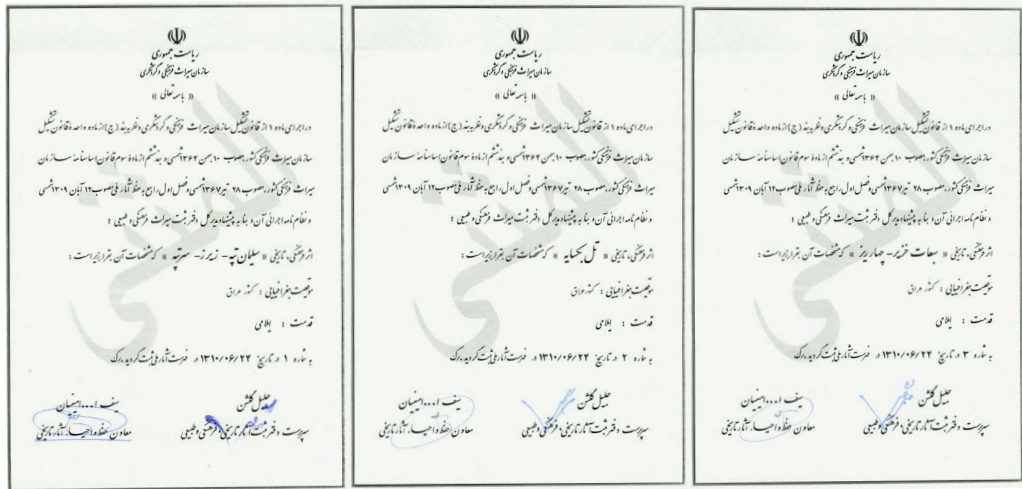 ریاست جمهوری
سازمان میراث فرهنگی و گردشگری
« باسمه تعالی »
در اجرای ماده ۱ از قانون تشکیل سازمان میراث فرهنگی و گردشگری و نظر به بند (ج) از ماده واحده قانون تشکیل
سازمان میراث فرهنگی کشور مصوب ۱۰ بهمن ۱۳۶۴ شمسی و بند ششم از ماده سوم قانون اساسنامه سازمان
میراث فرهنگی کشور، مصوب ۲۸ تیر ۱۳۶۷ شمسی و فصل اول، راجع به حفظ آثار ملی مصوب ۱۲ آبان ۱۳۰۹ شمسی
و نظام نامه اجرائی آن و بنا به پیشنهاد مدیرکل دفتر ثبت میراث فرهنگی و طبیعی :
اثر فرهنگی، تاریخی « سلیمان تپه - زیرز - سرتپه » که مشخصات آن بقرار زیر است :
موقعیت جغرافیایی : کشور عراق
قدمت : ایلامی
به شماره ۱ در تاریخ ۱۳۱۰/۰۶/۲۴ در فهرست آثار ملی ثبت گردیده، رک
جلیل گلشن
سرپرست دفتر ثبت آثار تاریخی، فرهنگی و طبیعی
سیف ا... امینیان
معاون حفظ و احیاء آثار تاریخی
ریاست جمهوری
سازمان میراث فرهنگی و گردشگری
« باسمه تعالی »
در اجرای ماده ۱ از قانون تشکیل سازمان میراث فرهنگی و گردشگری و نظر به بند (ج) از ماده واحده قانون تشکیل
سازمان میراث فرهنگی کشور مصوب ۱۰ بهمن ۱۳۶۴ شمسی و بند ششم از ماده سوم قانون اساسنامه سازمان
میراث فرهنگی کشور، مصوب ۲۸ تیر ۱۳۶۷ شمسی و فصل اول، راجع به حفظ آثار ملی مصوب ۱۲ آبان ۱۳۰۹ شمسی
و نظام نامه اجرائی آن و بنا به پیشنهاد مدیرکل دفتر ثبت میراث فرهنگی و طبیعی :
اثر فرهنگی، تاریخی « تل بکسایه » که مشخصات آن بقرار زیر است :
موقعیت جغرافیایی : کشور عراق
قدمت : ایلامی
به شماره ۲ در تاریخ ۱۳۱۰/۰۶/۲۴ در فهرست آثار ملی ثبت گردیده، رک
جلیل گلشن
سرپرست دفتر ثبت آثار تاریخی، فرهنگی و طبیعی
سیف ا... امینیان
معاون حفظ و احیاء آثار تاریخی
ریاست جمهوری
سازمان میراث فرهنگی و گردشگری
« باسمه تعالی »
در اجرای ماده ۱ از قانون تشکیل سازمان میراث فرهنگی و گردشگری و نظر به بند (ج) از ماده واحده قانون تشکیل
سازمان میراث فرهنگی کشور مصوب ۱۰ بهمن ۱۳۶۴ شمسی و بند ششم از ماده سوم قانون اساسنامه سازمان
میراث فرهنگی کشور، مصوب ۲۸ تیر ۱۳۶۷ شمسی و فصل اول، راجع به حفظ آثار ملی مصوب ۱۲ آبان ۱۳۰۹ شمسی
و نظام نامه اجرائی آن و بنا به پیشنهاد مدیرکل دفتر ثبت میراث فرهنگی و طبیعی :
اثر فرهنگی، تاریخی « سعات خزیر - چهار ریز » که مشخصات آن بقرار زیر است :
موقعیت جغرافیایی : کشور عراق
قدمت : ایلامی
به شماره ۳ در تاریخ ۱۳۱۰/۰۶/۲۴ در فهرست آثار ملی ثبت گردیده، رک
جلیل گلشن
سرپرست دفتر ثبت آثار تاریخی، فرهنگی و طبیعی
سیف ا... امینیان
معاون حفظ و احیاء آثار تاریخی
المثنی